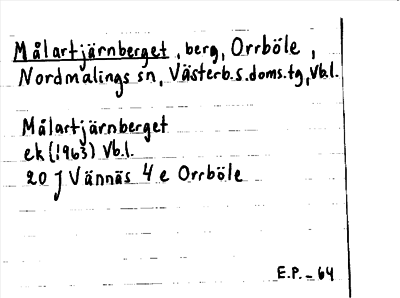 Målartjärnberget, berg, Orrböle,
Nordmalings sn, Västerb.s.doms.tg, Vb.l.
Målartjärnberget
ek (1963) Vb.l.
20 J Vännäs 4 e Orrböle
E.P. - 64